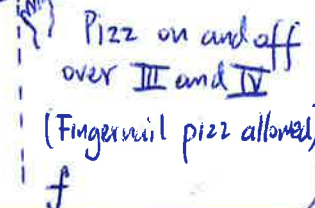 Pizz on and off
over III and IV
(Fingernail pizz allowed)
f